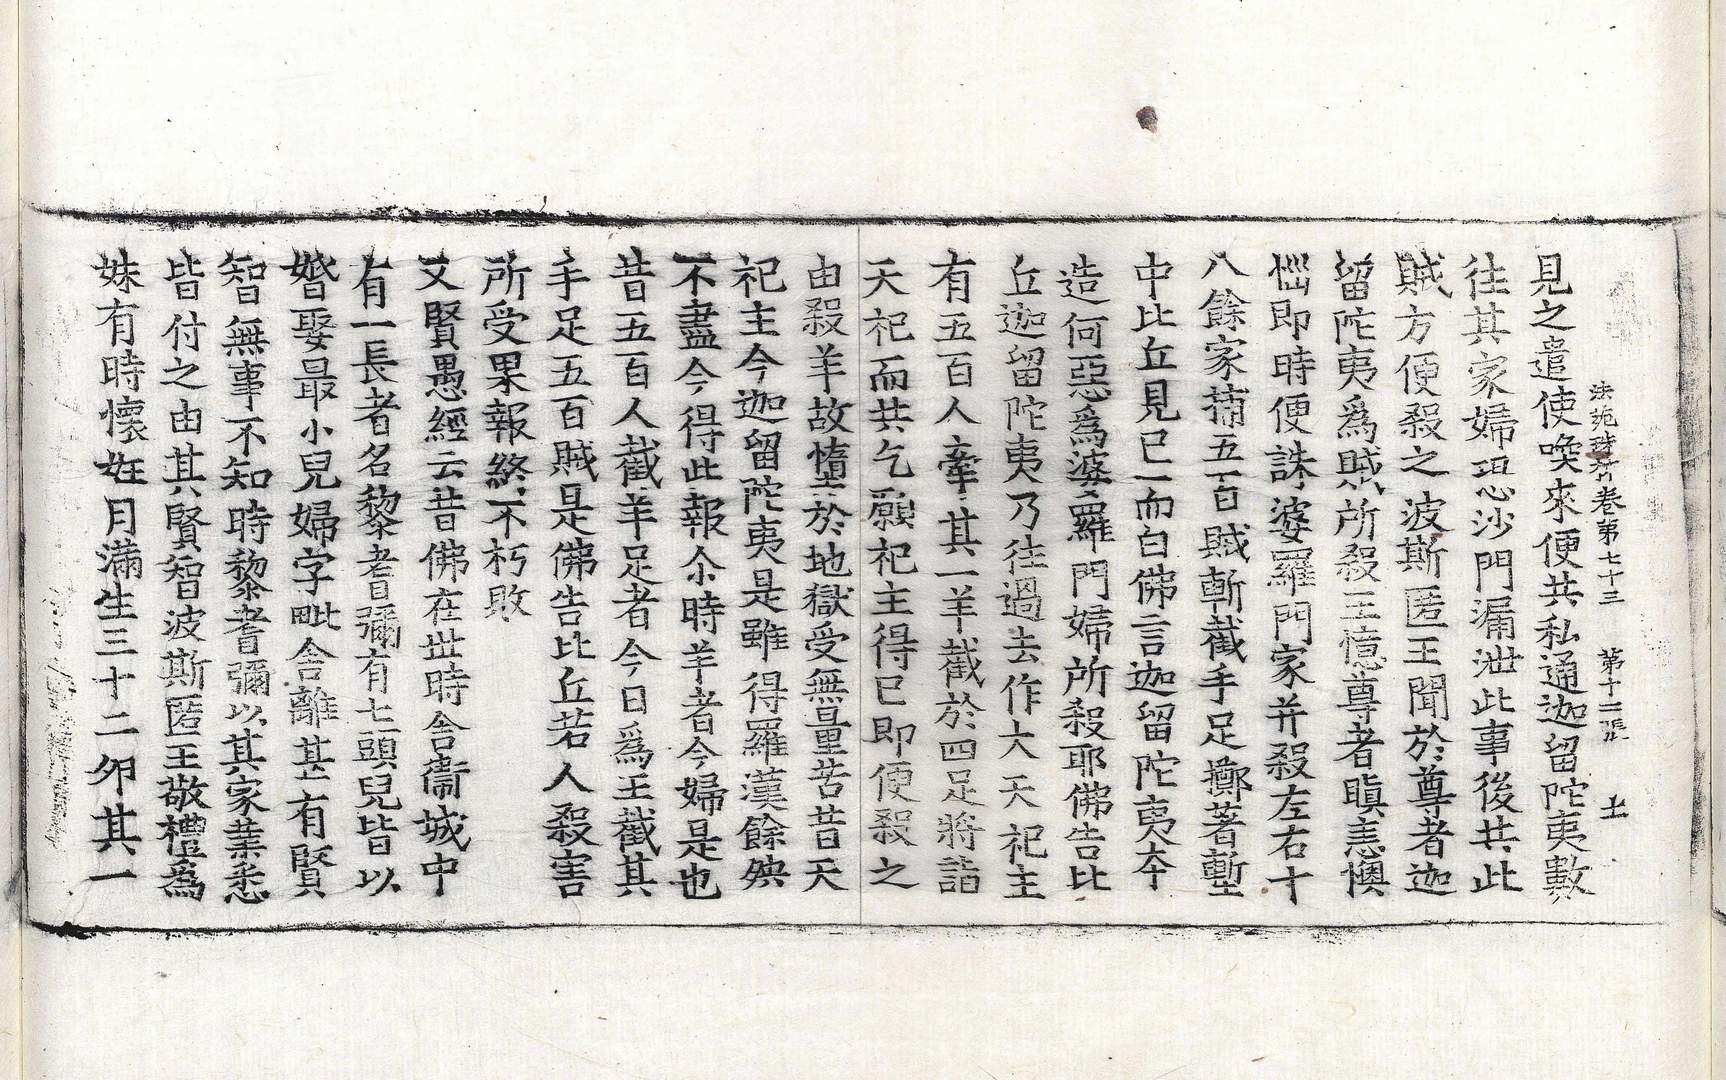 法苑珠林卷第七十三 第十一張 士
見之遣使喚來便共私通迦留陀夷數
往其家婦恐沙門漏泄此事後共此
賊方便殺之波斯匿王聞於尊者迦
留陀夷爲賊所殺王憶尊者瞋恚懊
惱即時便誅婆羅門家并殺左右十
八餘家捕五百賊斬截手足擲著塹
中比丘見已而白佛言迦留陀夷本
造何惡爲婆羅門婦所殺耶佛告比
丘迦留陀夷乃往過去作大天祀主
有五百人牽其一羊截於四足將詣
天祀而共乞願祀主得已即便殺之
由殺羊故墮於地獄受無量苦昔天
祀主今迦留陀夷是雖得羅漢餘殃
不盡今得此報尒時羊者今婦是也
昔五百人截羊足者今日爲王截其
手足五百賊是佛告比丘若人殺害
所受果報終不朽敗
又賢愚經云昔佛在世時舍衞城中
有一長者名黎耆彌有七頭兒皆以
婚娶最小兒婦字毗舍離甚有賢
智無事不知時黎耆彌以其家業悉
皆付之由其賢智波斯匿王敬禮爲
妹有時懷妊月滿生三十二卵其一